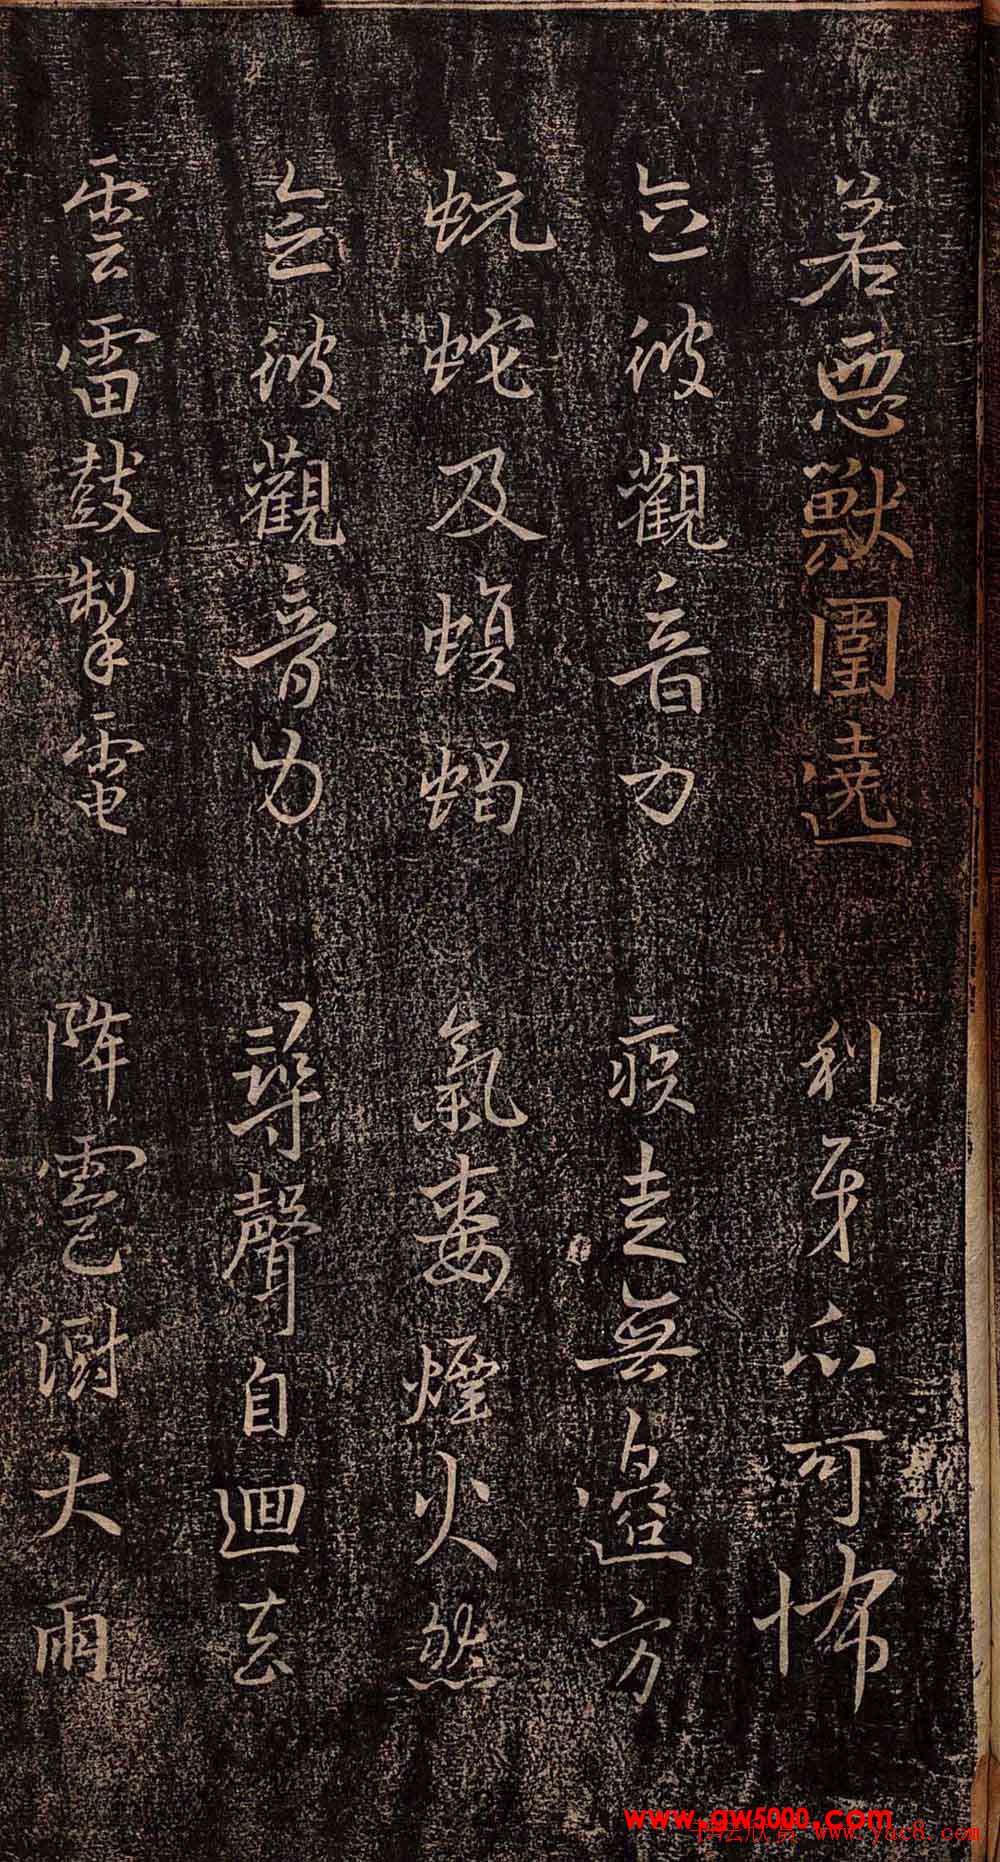 若惡獸圍遶 利牙爪可怖
念彼觀音力 疾走無邊方
蚖蛇及蝮蝎 氣毒煙火然
念彼觀音力 尋聲自迴去
雲雷鼓掣電 降雹澍大雨
www.gw5000.com
书法欣赏 www.yac8.com